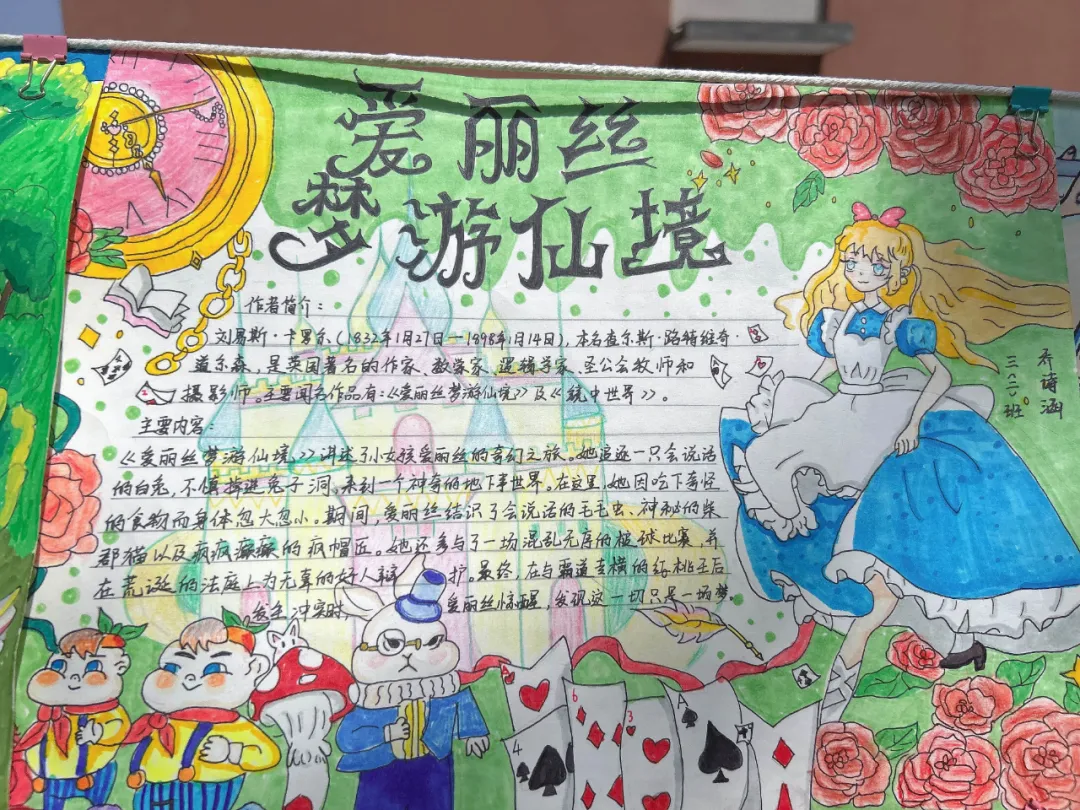 爱丽丝
梦游仙境
作者简介：
刘易斯·卡罗尔（1832年1月27日—1898年1月14日），本名查尔斯·路特维奇·
道尔森，是英国著名的作家、数学家、逻辑学家、圣公会牧师和
摄影师。主要闻名作品有：《爱丽丝梦游仙境》及《镜中世界》。
主要内容：
《爱丽丝梦游仙境》讲述了小女孩爱丽丝的奇幻之旅。她追逐一只会说话
的白兔，不慎掉进兔子洞，来到一个神奇的地下世界。在这里，她因吃下奇怪
的食物而身体忽大忽小。期间，爱丽丝结识了会说话的毛毛虫、神秘的柴
郡猫以及疯疯癫癫的疯帽匠。她还参与了一场混乱无序的槌球比赛，并
在荒诞的法庭上为无辜的好人辩护。最终，在与霸道专横的红桃王后
发生冲突时，爱丽丝惊醒，发现这一切只是一场梦。
乔诗涵
三八二〇班
A
6
3
4